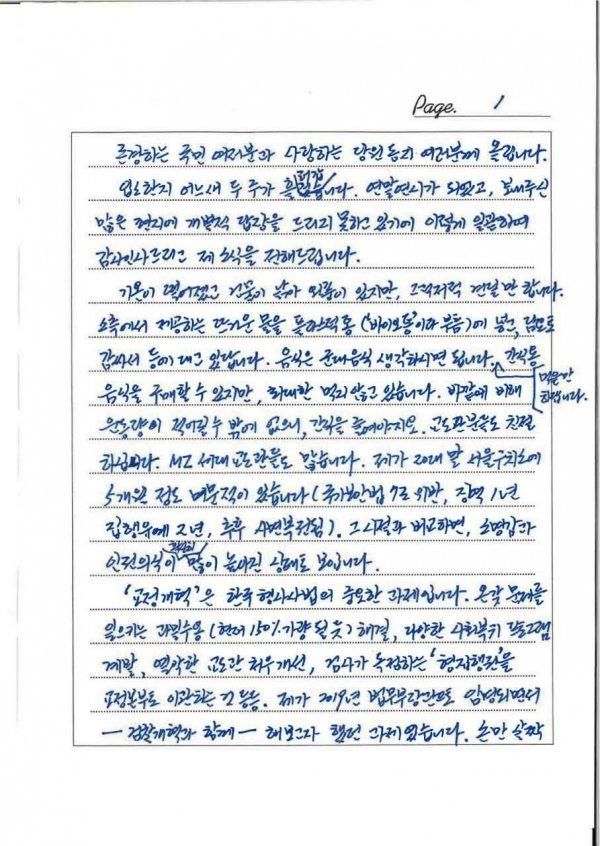 Page. 1
존경하는 국민 여러분과 사랑하는 당원 동지 여러분께 올립니다.
입소한지 어느새 두 주가 흘렀습니다. 연말연시가 되었고, 보내주신
많은 편지에 개별적 답장을 드리지 못하고 있기에 이렇게 일괄하여
감사인사드리고 제 소식을 전해드립니다.
기온이 떨어졌고 건물이 낡아 외풍이 있지만, 그럭저럭 견딜 만 합니다.
소측에서 제공하는 뜨거운 물을 플라스틱 통('바이오통'이라 부름)에 넣고, 담요로
감싸서 등에 대고 있답니다. 음식은 군대음식 생각하시면 됩니다. 간식용
음식을 구매할 수 있지만, 최대한 먹지 않고 있습니다. 바깥에 비해
먹을만
하답니다.
운동량이 적어질 수 밖에 없으니, 간식을 줄여야지요. 교도관분들도 친절
하십니다. MZ 세대 교도관들도 많습니다. 제가 20대 말 서울구치소에
5개월 정도 머문적이 있습니다(국가보안법 7조 위반, 징역 1년
집행유예 2년, 추후 사면복권됨). 그 시절과 비교하면, 소명감과
인권의식이 많이 높아진 상태로 보입니다.
'교정개혁'은 한국 형사사법의 중요한 과제입니다. 온갖 문제를
일으키는 과밀수용(현재 150%가량 될 듯) 해결, 다양한 사회복귀 프로그램
개발, 열악한 교도관 처우개선, 검사가 독점하는 '형집행권'을
교정본부로 이관하는 것 등등. 제가 2019년 법무부장관으로 임명되면서
— 검찰개혁과 함께 — 해보고자 했던 과제였습니다. 손만 살짝